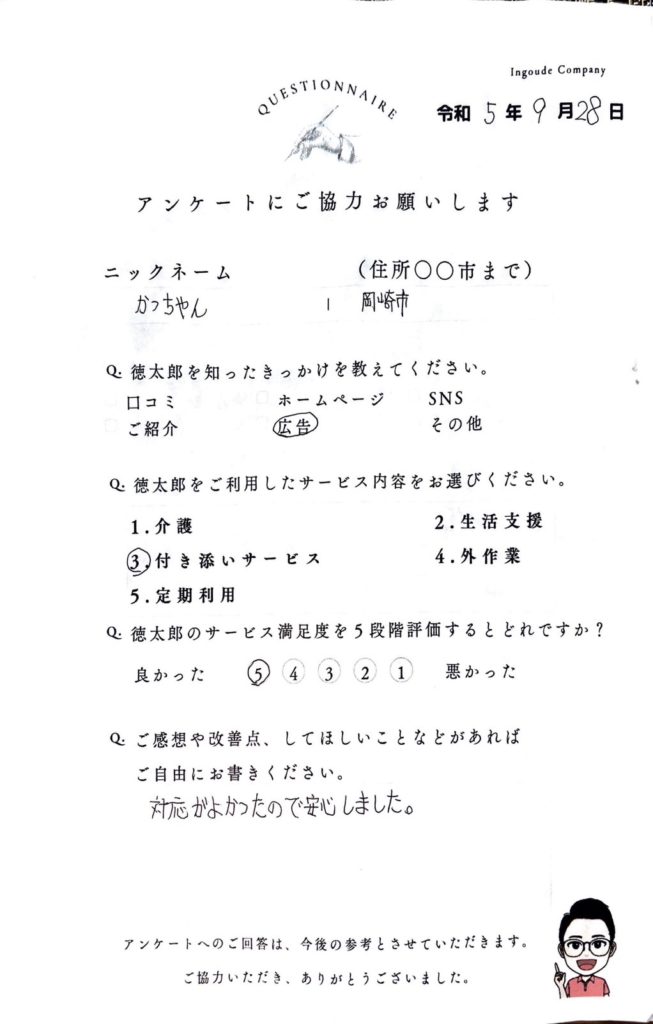 Ingoude Company
QUESTIONNAIRE
令和 5 年 9 月 28 日
アンケートにご協力お願いします
ニックネーム (住所〇〇市まで)
かっちゃん 岡崎市
Q. 徳太郎を知ったきっかけを教えてください。
口コミ ホームページ SNS
ご紹介 広告 その他
Q. 徳太郎をご利用したサービス内容をお選びください。
1.介護 2.生活支援
3.付き添いサービス 4.外作業
5.定期利用
Q. 徳太郎のサービス満足度を5段階評価するとどれですか?
良かった 5 4 3 2 1 悪かった
Q. ご感想や改善点、してほしいことなどがあれば
ご自由にお書きください。
対応がよかったので安心しました。
アンケートへのご回答は、今後の参考とさせていただきます。
ご協力いただき、ありがとうございました。